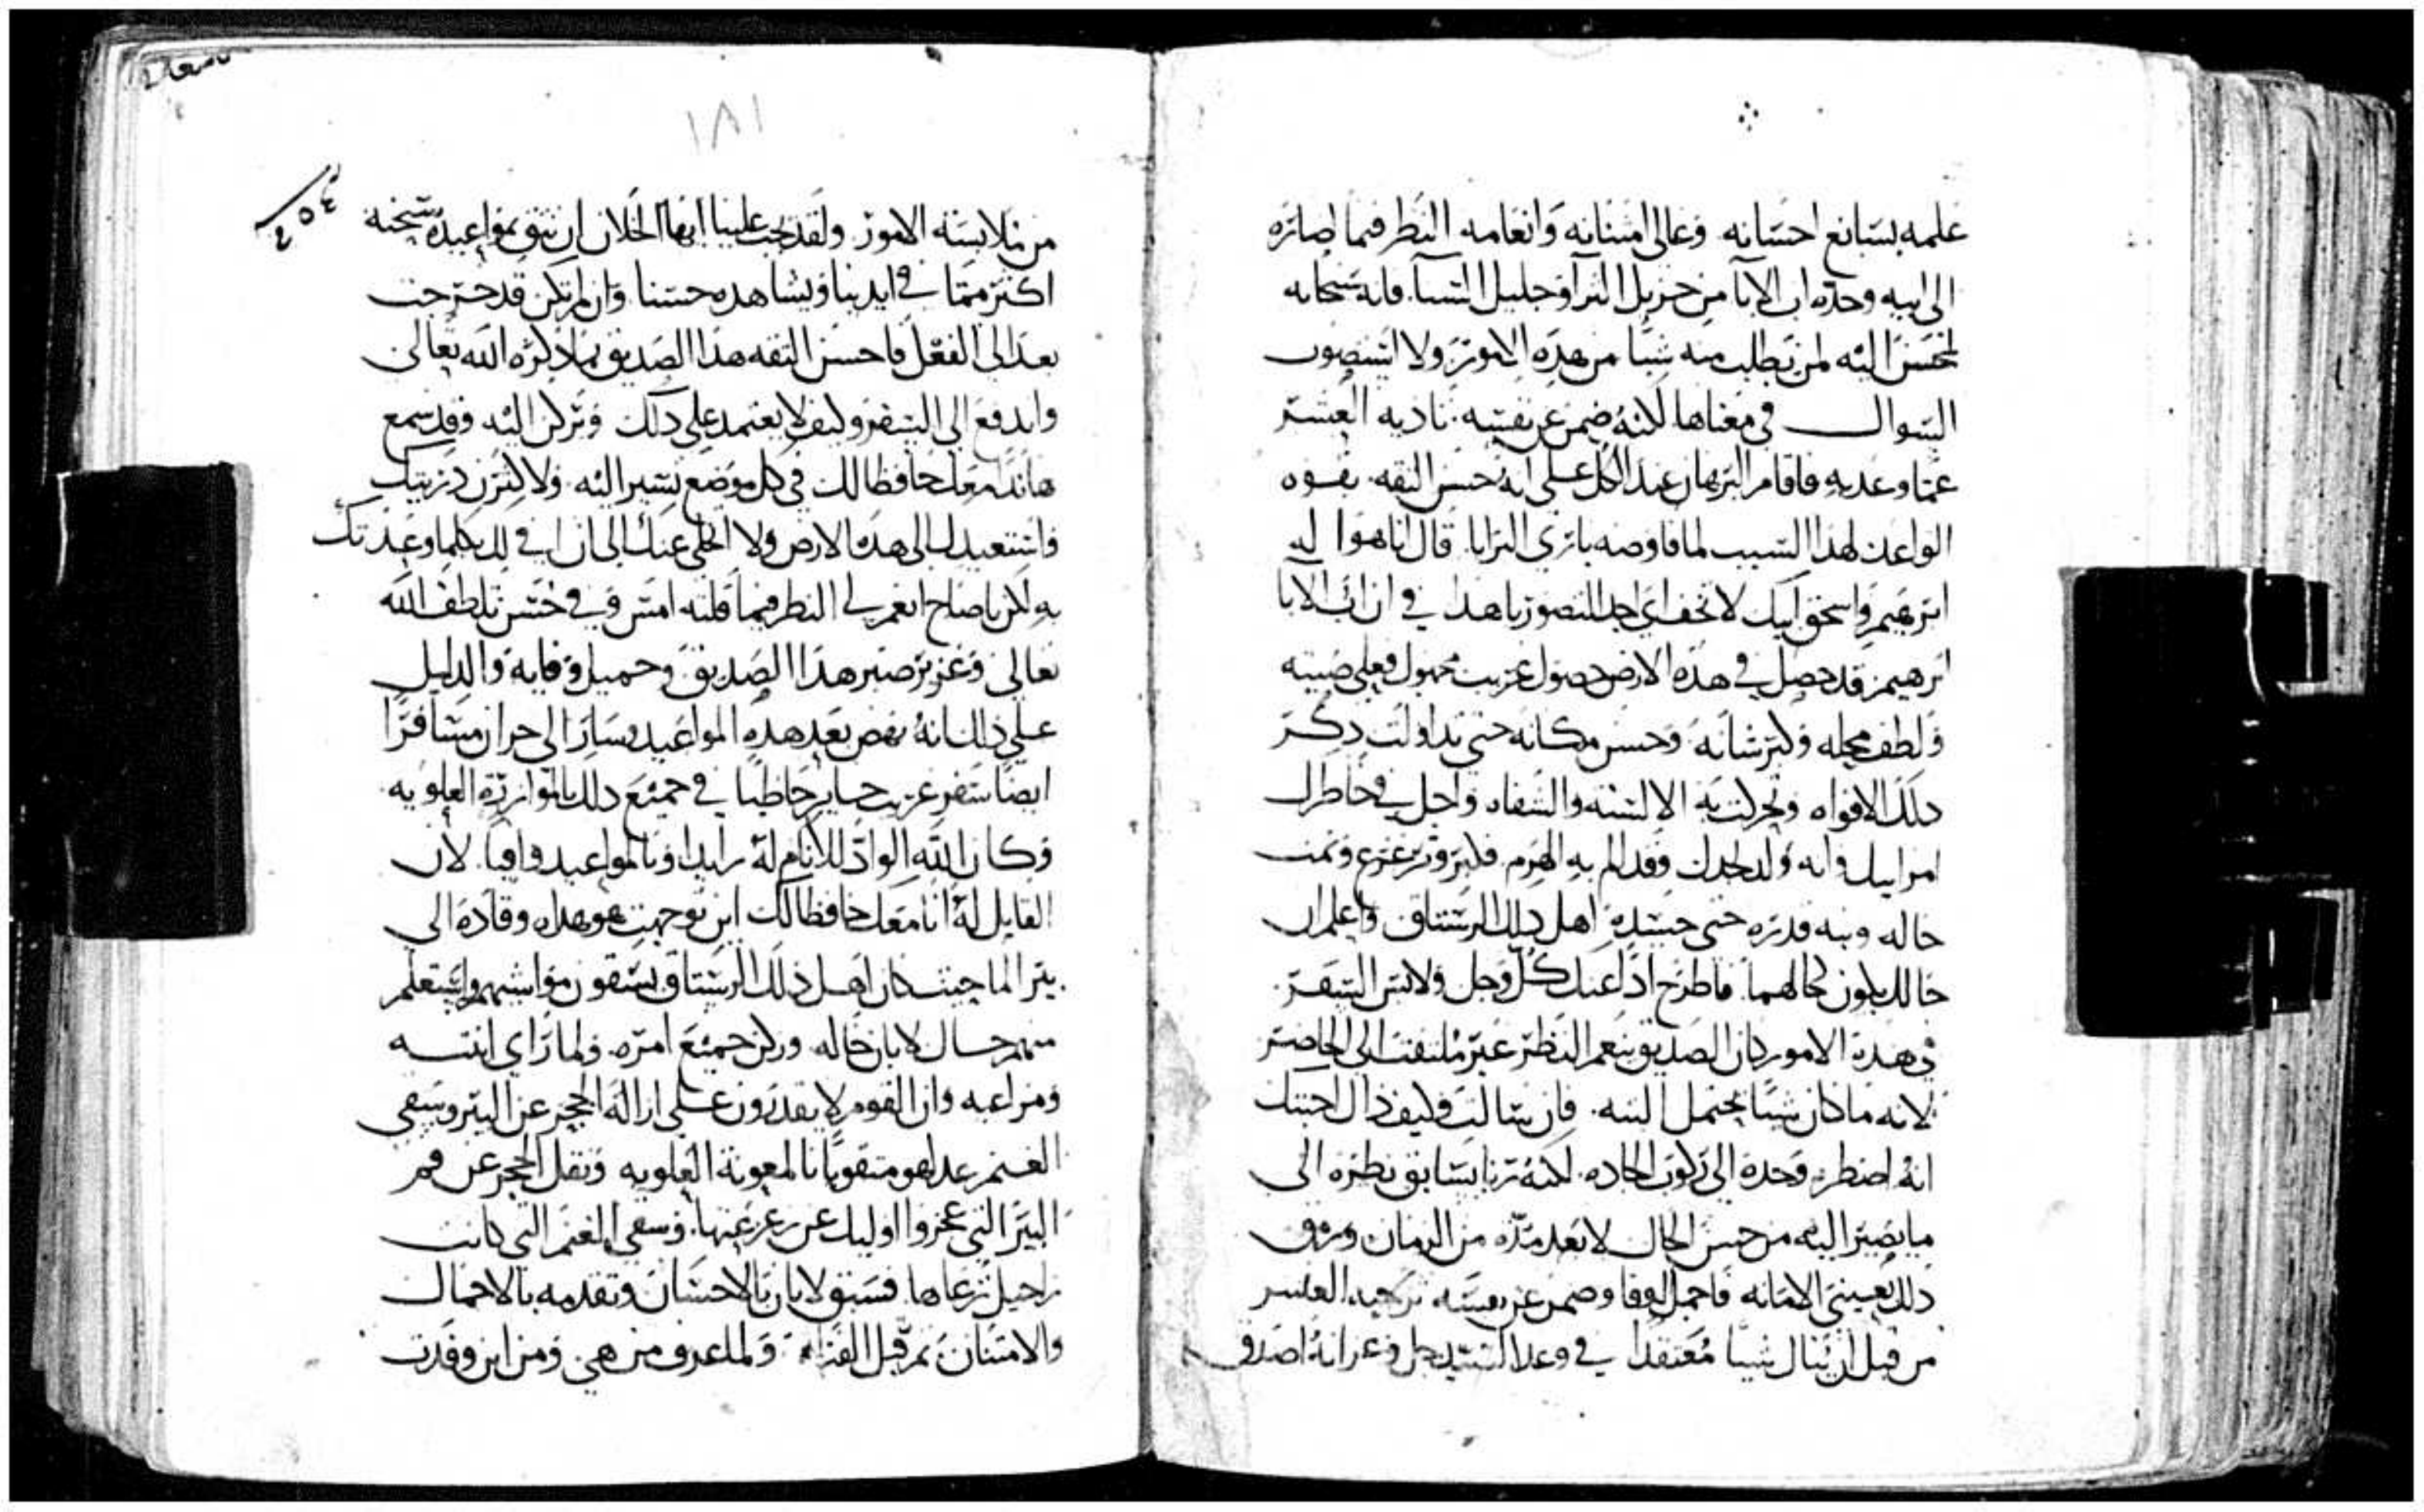 علمه بسابع احسانه وعالي امتنانه وانعامه النظر فيما اصاره
الى ابيه وحده اب الابا من جزيل الثرآ وجليل السنآ. فانه سبحانه
المحسن اليه لمن تطلب منه شيا من هذه الامور ولا استصوب
السوال في معناها لكنه ضمن عن نفسه تاديه العشر
عما وعد به فاقام البرهان عند الكل على انه حسن الثقه بقوه
الواعد لهذا السبب لما فاوضه باري البرايا قال انا هو اله
ابرهيم واسحق ابيك لا تخف اي اجل التصور يا هذا في ان اب الابا
ابرهيم قد حصل في هذه الارض حصول غريب مجهول فعلي صيته
ولطف محله وكبر شانه وحسن مكانه حتى تداولت ذكر
ذلك الافواه وتحركت به الالسنه والشفاه واجل في خاطرك
امر ابيك وانه ولد لجدك وقد الم به الهرم فكبر وترعرع ونمت
حاله وبه قدره حتى حسده اهل ذلك الرستاق واعلم ان
حالك يكون كحالهما. فاطرح اذا عنك كل وجل ولابس السفر
في هذه الامور كان الصديق ينعم النظر غير ملتفت الى الحاضر
لانه ما كان شيا يحتمل البته. فان سالت وكيف ذاك اجبتك
انه اضطر وحده الى ركوب الجاده. لكنه رنا بسابق نظره الى
ما يصير اليه من حسن الحال لا بعد مده من الزمان ورمق
ذلك بعيني الامانه فاجمل الوفا وضمن عن نفسه تزكيه العشر
من قبل ان ينال شيا معتقدا في وعد السيد جل وعز انه اصدق
١٨١
من ملابسته الامور. ولقد يجب علينا ايها الخلان ان نثق بمواعيده سبحانه
اكثر مما في ايدينا ويشاهده حسنا وان لم تكن قد خرجت
بعد الى الفعل فاحسن الثقه هذا الصديق بما ذكره الله تعالى
واندفع الى السفر وكيف لا يعتمد على ذلك ويركن اليه وقد سمع
هانذا معك حافظا لك في كل موضع تسير اليه ولاكثرن ذريتك
واستعيدك الى هذه الارض ولا اتخلى عنك الى ان افي لك بكلما وعدتك
به لكن يا صاح انعم لي النظر فيما قلته امس وفي حسن تلطف الله
تعالى وغزير صبر هذا الصديق وجميل وفايه والدليل
على ذلك انه نهض بعد هذه المواعيد وسار الى حران مسافرا
ايضا سفر غريب حاير حاظيا في جميع ذلك بالموازره العلويه
وكان الله الواد للانام له رايدا وبالمواعيد وافيا. لان
القايل له انا معك حافظا لك اين توجهت هو هداه وقاده الى
بير الما حيث كان اهل ذلك الرستاق يسقون مواشيهم واستعلم
منهم حال لابان خاله. وركن جميع امره. ولما راي ابنته
ومراعيه وان القوم لا يقدرون على ازاله الحجر عن البير وسقي
الغنم عدا هو متقويا بالمعونة العلويه ونقل الحجر عن فم
البير التي عجزوا اوليك عن زعزعتها. وسقي الغنم التي كانت
راحيل ترعاها. فسبق لابان بالاحسان وتقدمه بالاجمال
والامتنان ثم قبل الفتاه. ولما عرف من هي ومن اين وفدت